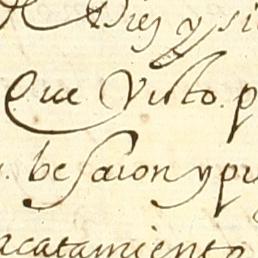 Diez y si
Que Visto p
besaron ypu
acatamiento